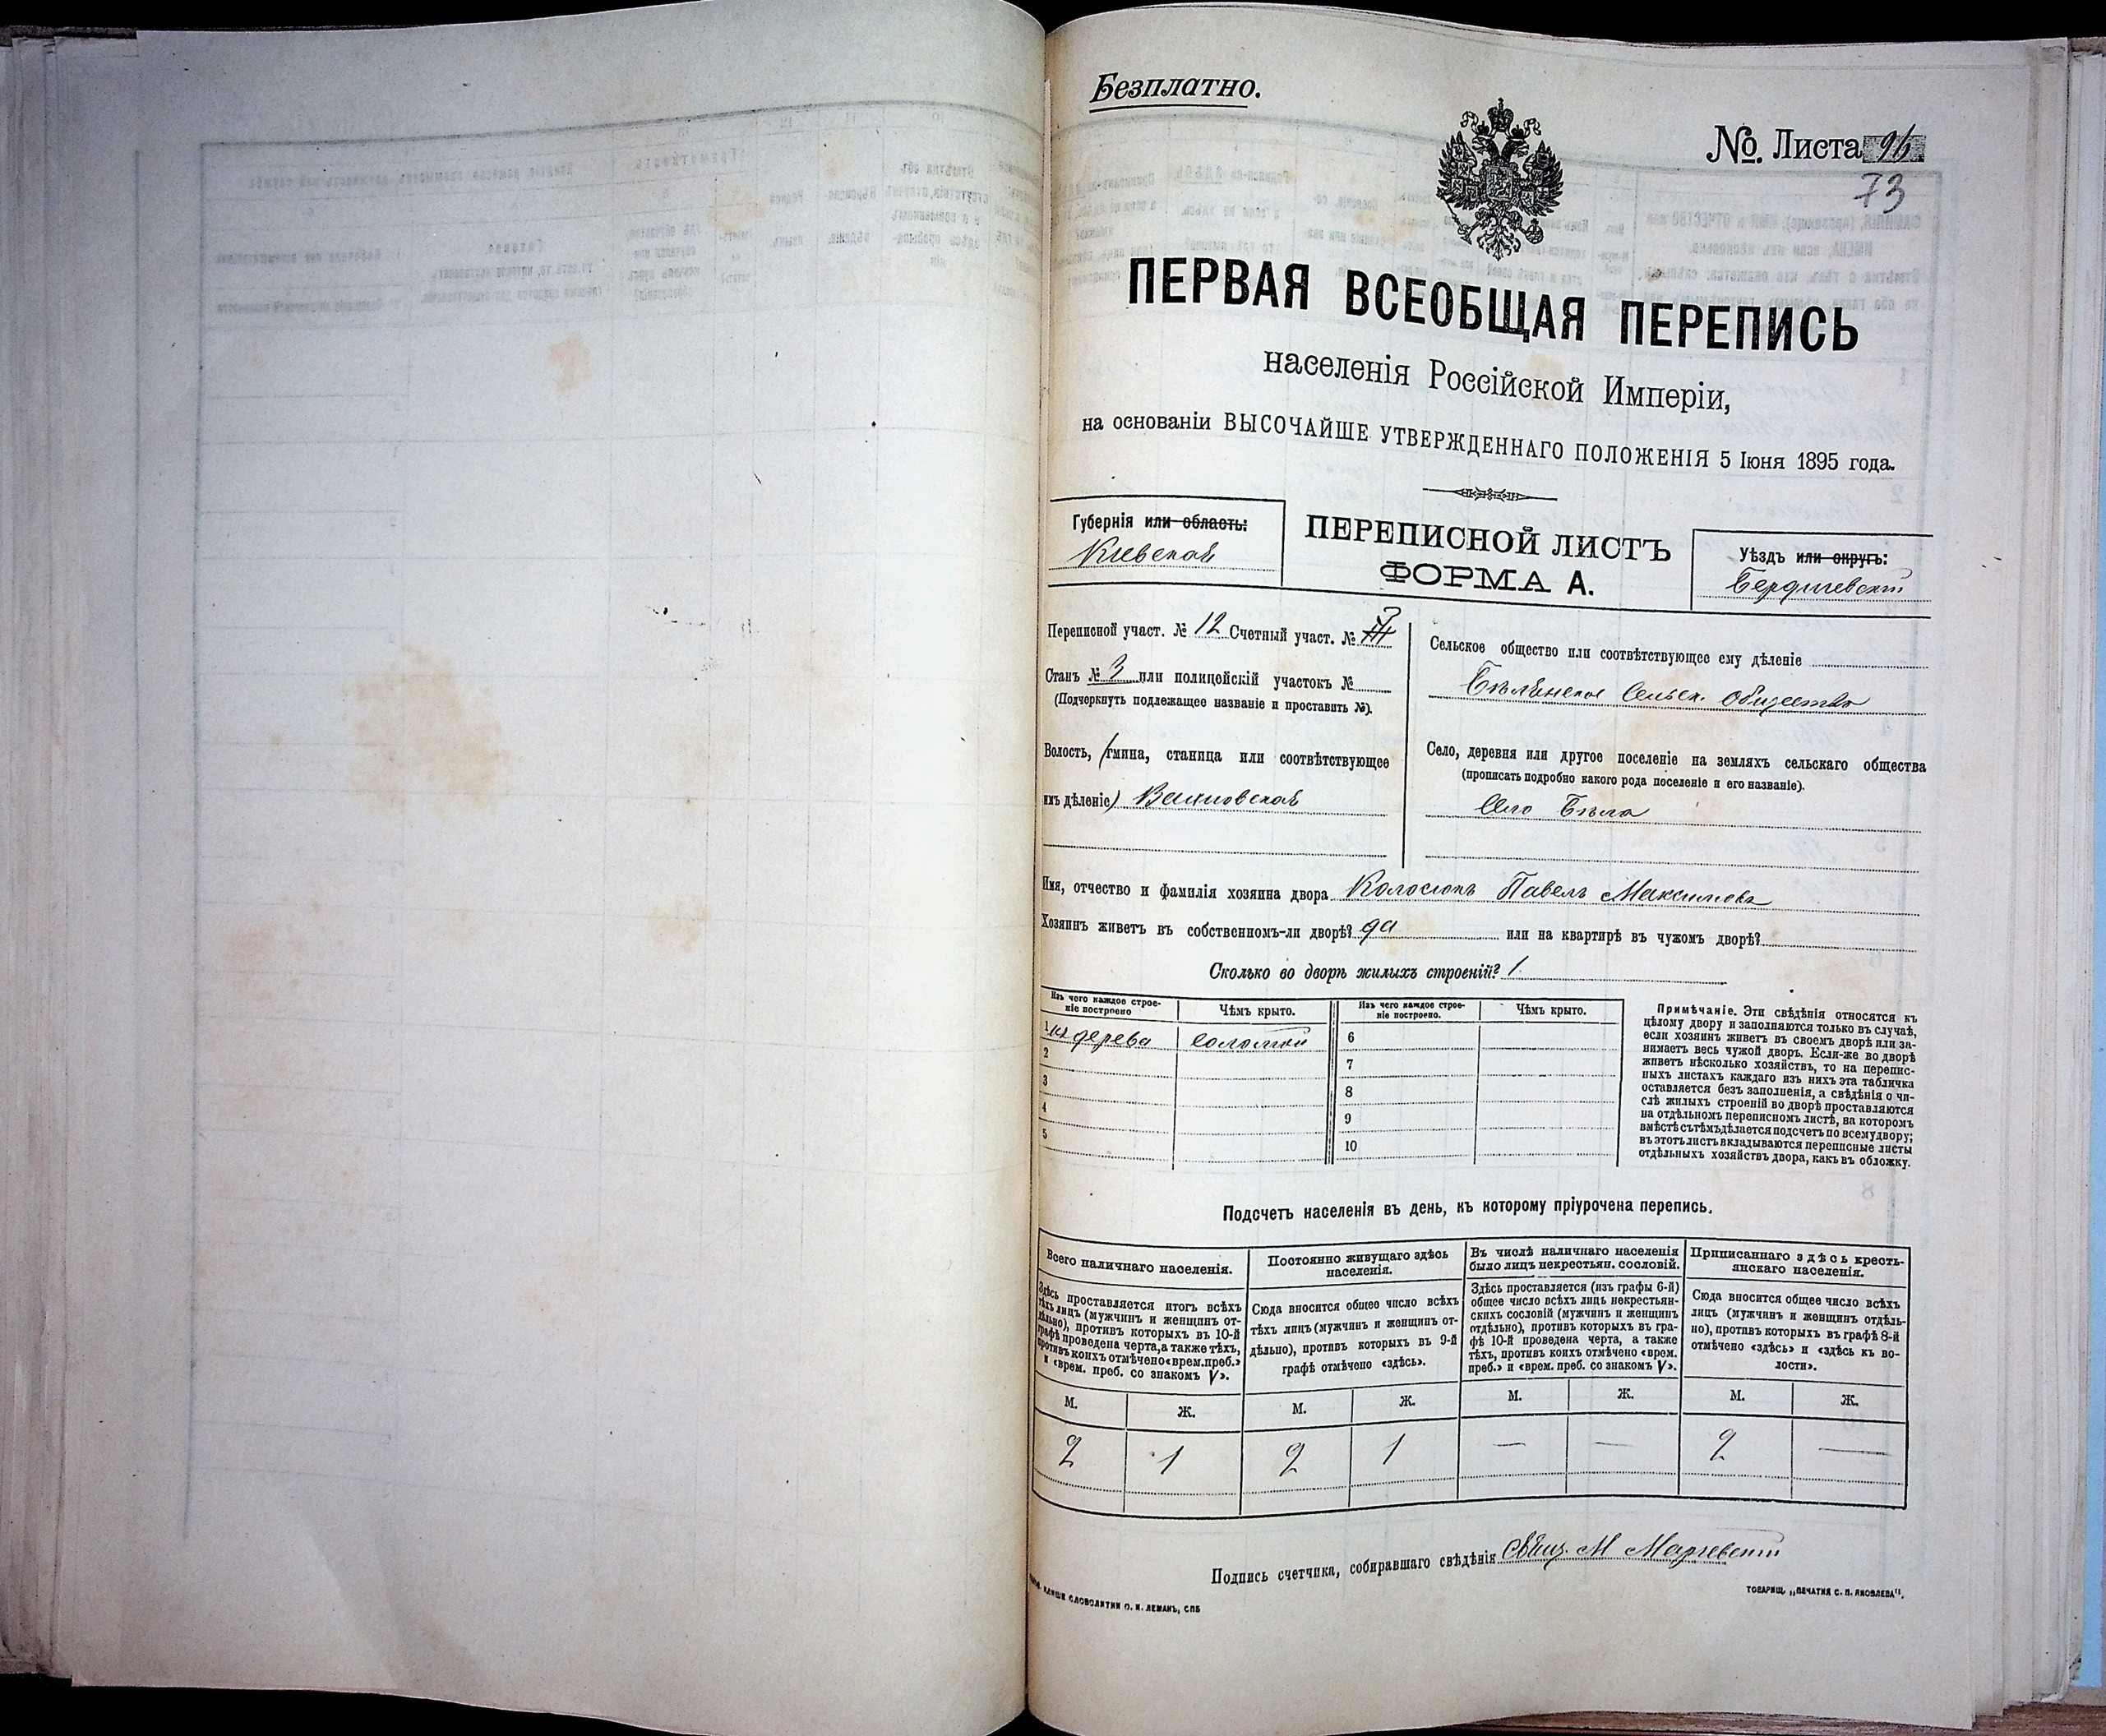 Безплатно.
№. Листа 96
73
ПЕРВАЯ ВСЕОБЩАЯ ПЕРЕПИСЬ
населенія Россійской Имперіи,
на основаніи ВЫСОЧАЙШЕ УТВЕРЖДЕННАГО ПОЛОЖЕНІЯ 5 Іюня 1895 года.
Губернія или область:
Кіевская
ПЕРЕПИСНОЙ ЛИСТЪ
ФОРМА А.
Уѣздъ или округъ:
Бердичевскій
Переписной участ. № 12 Счетный участ. №
Станъ № 3 или полицейскій участокъ №
(Подчеркнуть подлежащее названіе и проставить №).
Волость, (гмина, станица или соотвѣтствующее
имъ дѣленіе) Вахновская
Сельское общество или соотвѣтствующее ему дѣленіе
Бѣлянское Сельск. Общество
Село, деревня или другое поселеніе на земляхъ сельскаго общества
(прописать подробно какого рода поселеніе и его названіе).
Село Бѣла
Имя, отчество и фамилія хозяина двора Колосюкъ Павелъ Максимовъ
Хозяинъ живетъ въ собственномъ-ли дворѣ? да или на квартирѣ въ чужомъ дворѣ?
Сколько во дворѣ жилыхъ строеній? 1
Изъ чего каждое строеніе построено
Чѣмъ крыто.
Изъ чего каждое строеніе построено.
Чѣмъ крыто.
1 из дерева соломой
2
3
4
5
6
7
8
9
10
Примѣчаніе. Эти свѣдѣнія относятся къ
цѣлому двору и заполняются только въ случаѣ,
если хозяинъ живетъ въ своемъ дворѣ или за-
нимаетъ весь чужой дворъ. Если-же во дворѣ
живетъ нѣсколько хозяйствъ, то на перепис-
ныхъ листахъ каждаго изъ нихъ эта табличка
оставляется безъ заполненія, а свѣдѣнія о чи-
слѣ жилыхъ строеній во дворѣ проставляются
на отдѣльномъ переписномъ листѣ, на которомъ
вмѣстѣ съ тѣмъ дѣлается подсчетъ по всему двору;
въ этотъ листъ вкладываются переписные листы
отдѣльныхъ хозяйствъ двора, какъ въ обложку.
Подсчетъ населенія въ день, къ которому пріурочена перепись.
Всего наличнаго населенія.
Здѣсь проставляется итогъ всѣхъ
тѣхъ лицъ (мужчинъ и женщинъ от-
дѣльно), противъ которыхъ въ 10-й
графѣ проведена черта, а также тѣхъ,
противъ коихъ отмѣчено «врем. преб.»
и «врем. преб. со знакомъ V».
Постоянно живущаго здѣсь
населенія.
Сюда вносится общее число всѣхъ
тѣхъ лицъ (мужчинъ и женщинъ от-
дѣльно), противъ которыхъ въ 9-й
графѣ отмѣчено «здѣсь».
Въ числѣ наличнаго населенія
было лицъ некрестьян. сословій.
Здѣсь проставляется (изъ графы 6-й)
общее число всѣхъ лицъ некрестьян-
скихъ сословій (мужчинъ и женщинъ
отдѣльно), противъ которыхъ въ гра-
фѣ 10-й проведена черта, а также
тѣхъ, противъ коихъ отмѣчено «врем.
преб.» и «врем. преб. со знакомъ V».
Приписаннаго здѣсь кресть-
янскаго населенія.
Сюда вносится общее число всѣхъ
лицъ (мужчинъ и женщинъ отдѣль-
но), противъ которыхъ въ графѣ 8-й
отмѣчено «здѣсь» и «здѣсь къ во-
лости».
М. Ж. М. Ж. М. Ж. М. Ж.
2 1 2 1 — — 2 —
Подпись счетчика, собиравшаго свѣдѣнія Свящ. М
СЛОВОЛИТНИ О. И. ЛЕМАНЪ, СПБ
ТОВАРИЩ. „ПЕЧАТНЯ С. П. ЯКОВЛЕВА".